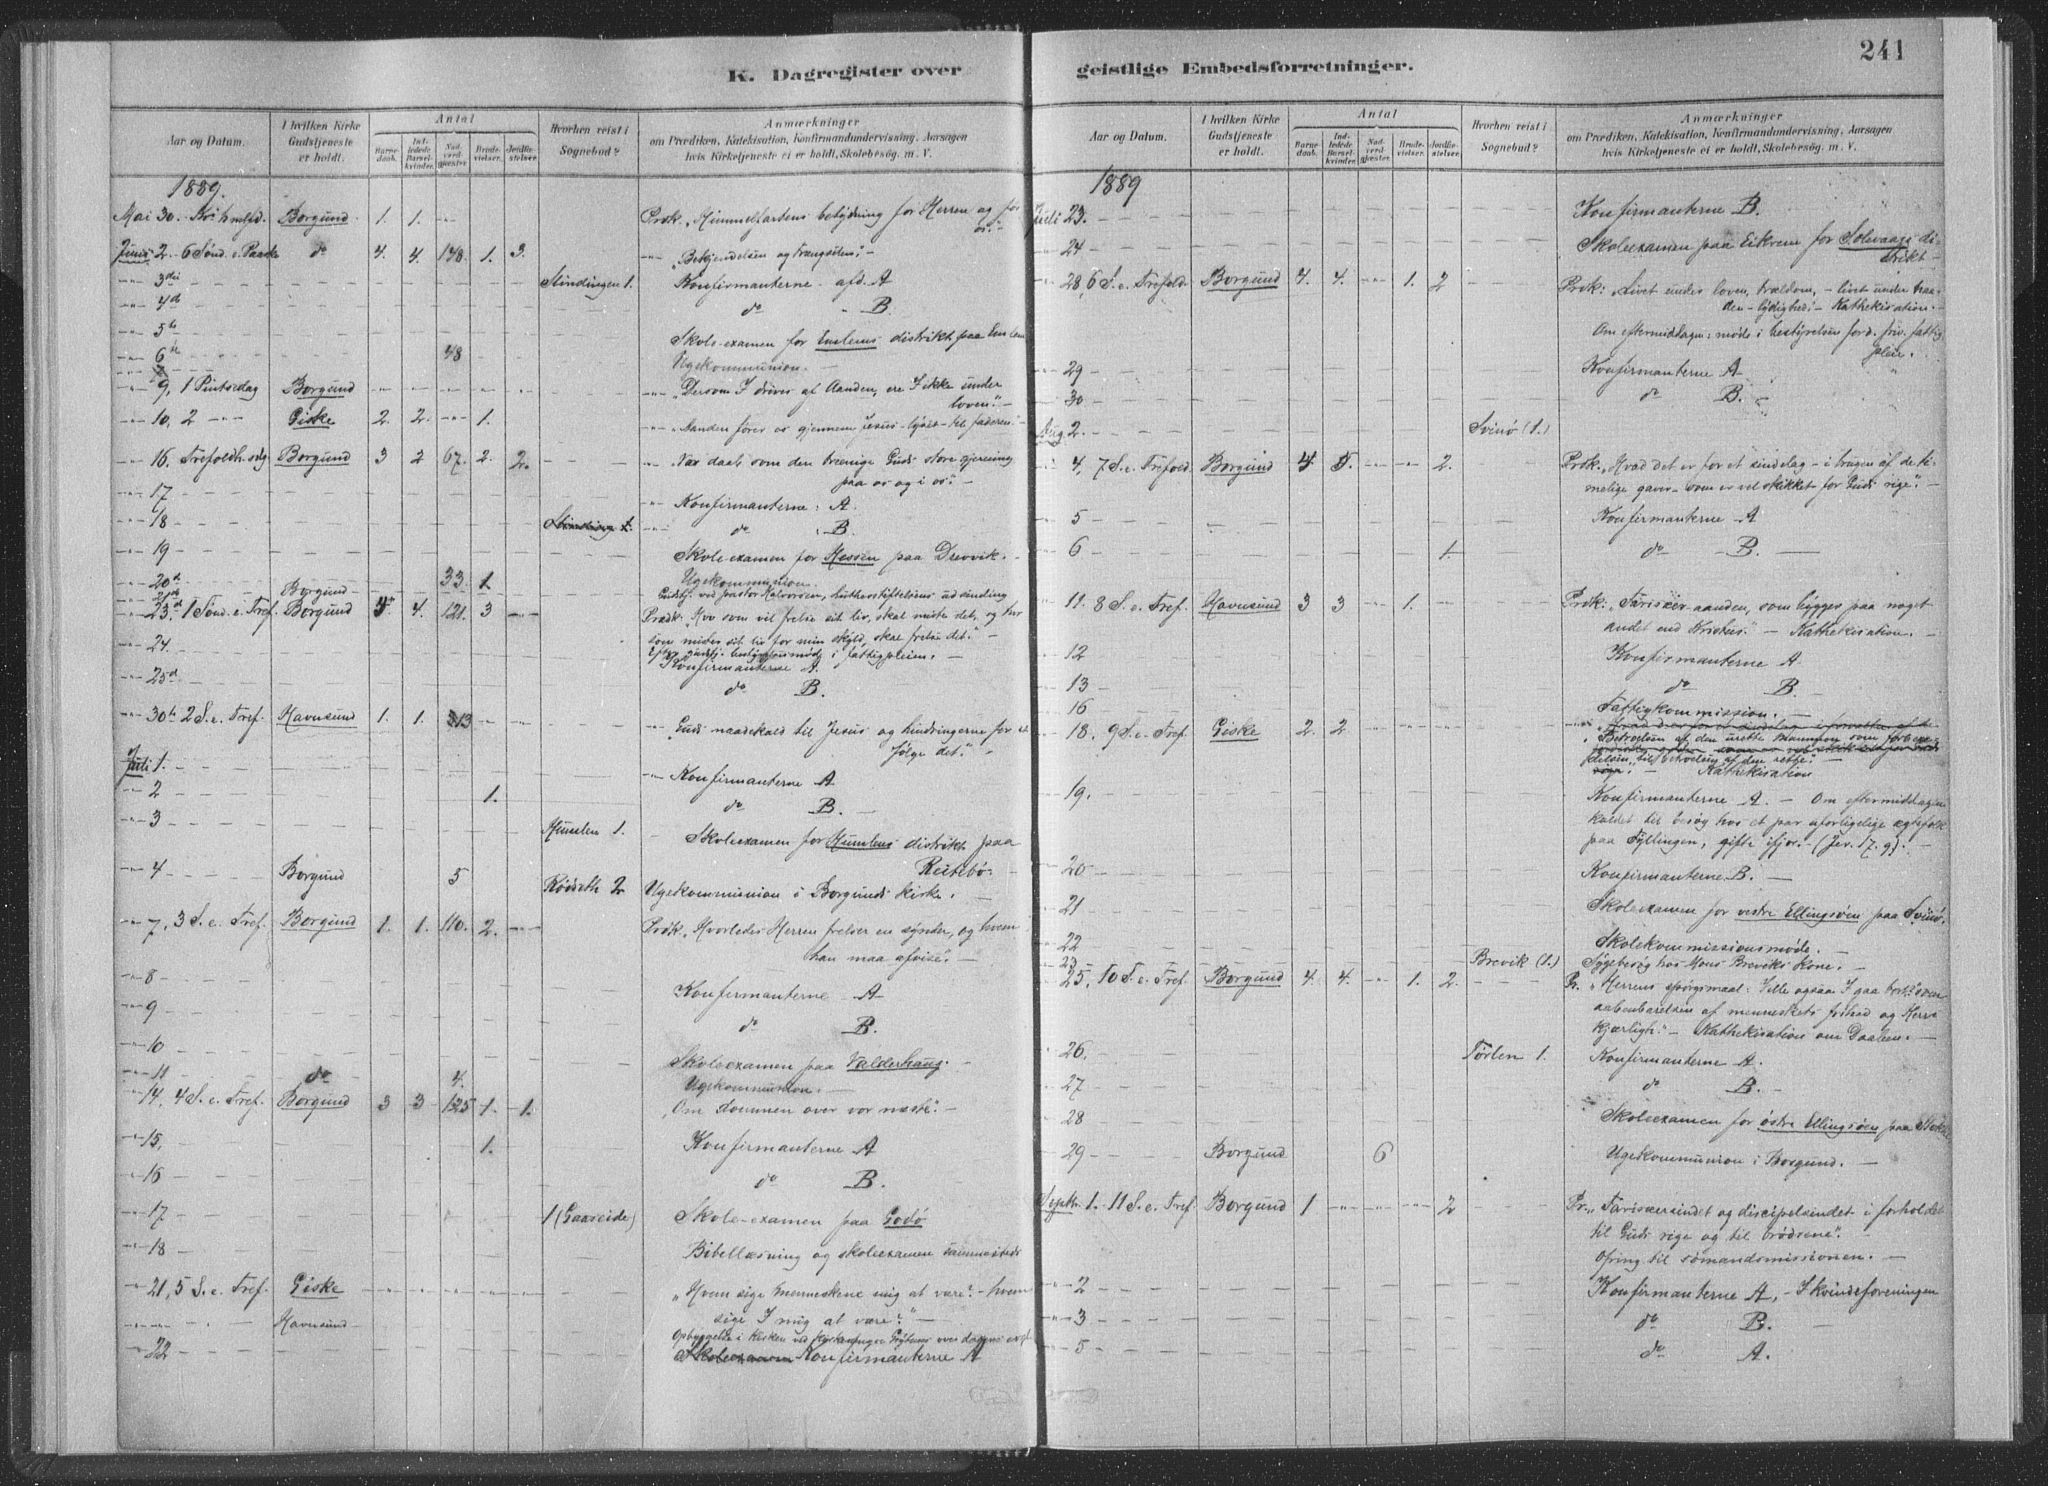 K. Dagregister over
Aar og Datum.
I hvilken Kirke Gudstjeneste er holdt.
Antal
Barnedaab.
Indledede Barselkvinder.
Nadverdgjæster.
Brudevielser.
Jordfæstelser.
Hvorhen reist i Sognebud?
Anmærkninger
om Prædiken, Katekisation, Konfirmandundervisning, Aarsagen
hvis Kirketjeneste ei er holdt, Skolebesøg. m. V.
1889.
Mai 30. Kr. himlfd. Borgund 1. 1. Præk. „Himmelfartens betydning for Herren og for os.“
Juni 2. 6 Sønd. e. Paaske do 4. 4. 148. 1. 3. „Bekjendelsen og trængselen“
3die Slindingen 1. Konfirmanterne afd. A
4d do B.
5te Skole-examen for Emlems distrikt paa Emlem
6te 48 Ugekommunion.
9, 1 Pintsedag Borgund „Dersom I drives af Aanden, ere I ikke under
loven“.
10, 2 Giske 2. 2. 1. „Aanden fører os gjennem Jesus - lyset - til faderen.“
16. Trefoldh. sdg. Borgund 3 2 67. 2. 2. „Vor daab, som den treenige Guds store gjerning
paa os og i os“.
17 Konfirmanterne: A.
18 do B.
19 Skoleexamen for Hessen paa Drevvik.
20d 33. 1. Ugekommunion.
21de Borgund Gudstj. ved pastor Halvorsen, Lutherstiftelsens udsending
23d. 1 Sønd. e. Tref. Borgund 4. 121. 3 Prædk: „Hvo som vil frelse sit liv, skal miste det, og hvo
som mister sit liv for min skyld, skal frelse det.“
Efter gudstj. bestyrelsesmøde i fattigpleien.
24. Konfirmanterne A.
25d do B.
30te 2 S. e. Tref. Havnsund 1. 1. „Guds naadekald til Jesus og hindringerne for at
følge det.“
Juli 1. Konfirmanterne A
2 1. do B.
3 Humlen 1. Skoleexamen for Humlens distrikt paa
Reitebø
4 Borgund 5 Rødseth 2 Ugekommunion i Borgunds kirke.
7, 3 S. e. Tref. Borgund 1. 1. 110. 2. Præk „Hvorledes Herren frelser en synder, og hvem
han maa afvise“.
8 Konfirmanterne A
9 do B.
10 Skoleexamen paa Valderhaug.
11 do 4. Ugekommunion.
14, 4 S. e. Tref. Borgund 3 3 125 1. 1. „Om dommen over vor næste“.
15, 1. Konfirmanterne A
16 do B.
17 1 (Gaaseide) Skole-examen paa Godø
18 Bibellæsning og skoleexamen sammesteds
21, 5 S. e. Tref. Giske „Hvem sige menneskene mig at være? - hvem
sige I mig at være?“
Havnsund Opbyggelse i kirken ved kirkesanger
22 Skoleexamen Konfirmanterne A
241
geistlige Embedsforretninger.
Aar og Datum.
I hvilken Kirke Gudstjeneste er holdt.
Antal
Barnedaab.
Indledede Barselkvinder.
Nadverdgjæster.
Brudevielser.
Jordfæstelser.
Hvorhen reist i Sognebud?
Anmærkninger
om Prædiken, Katekisation, Konfirmandundervisning, Aarsagen
hvis Kirketjeneste ei er holdt, Skolebesøg. m. V.
1889
Juli 23. Konfirmanterne B.
24 Skoleexamen paa Eikrem for Solevaags di-
strikt
28, 6 S. e. Trefold. Borgund 4. 4. 1. 2 Præk: „Livet under loven, trældom, - livet under naa-
den - lydighed“ - Kathekisation.
Om eftermiddagen: møde i bestyrelsen for d. friv. fattig-
pleie.
29 Konfirmanterne A
30 do B.
Aug 2. Svinø (1.)
4, 7 S. e. Trefold. Borgund 4. 5. 2. Præk. „Hvad det er for et sindelag - i brugen af de ti-
melige gaver - som er vel skikket for Guds rige“.
5 Konfirmanterne A
6 1. do B.
11. 8 S. e. Tref. Havnsund 3 3 1. Præk: „Farisæer-aanden, som bygges paa noget
andet end Kristus.“ - Kathekisation.
12 Konfirmanterne A
13 do B.
16 Fattigkommission.
18, 9 S. e. Tref. Giske 2. 2
„Betroelsen af den urette Mammon som forbere-
delsen „til betroelsen af den rette“.
Kathekisation
19. Konfirmanterne A. - Om eftermiddagen
kaldet til besøg hos et par uforligelige egtefolk
paa Fyllingen, gifte ifjor. - (Jer. 17. 9).
20 Konfirmanterne B.
21 Skoleexamen for vestre Ellingsøen paa Svinø.
22 Skolekommissionsmøde.
23 Brevik (1.) Sygebesøg hos Mons Breviks Kone.
25, 10 S. e. Tref. Borgund 4. 4. 1. 2. Pr. „Herrens spørgsmaal: Ville ogsaa I gaa bort? som
aabenbarelsen af menneskets frihed og Herrens
kjærligh“ - Kathekisation om Daaben.
26. Tørlen 1. Konfirmanterne A.
27 do B.
28 Skoleexamen for østre Ellingsøen paa
29 Borgund 6 Ugekommunion i Borgund.
Septbr. 1. 11 S. e. Tref. Borgund 1 2 Pr. „Farisæersindet og discipelsindet i forholdet
til Guds rige og til brødrene“.
Ofring til sømandsmissionen.
2 Konfirmanterne A. - I kvindeforeningen
3 do B.
5 do A.